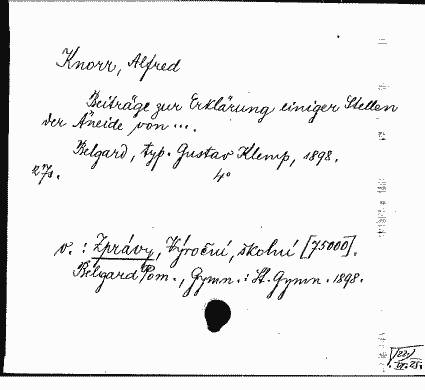 Knorr, Alfred
Beiträge zur Erklärung einiger Stellen
der Äneide von ....
Belgard, typ. Gustav Klemp, 1898.
27s. 4°
v.: Zprávy, Výroční, školní [75000].
Belgard Pom., Gymn.: St. Gymn. 1898.